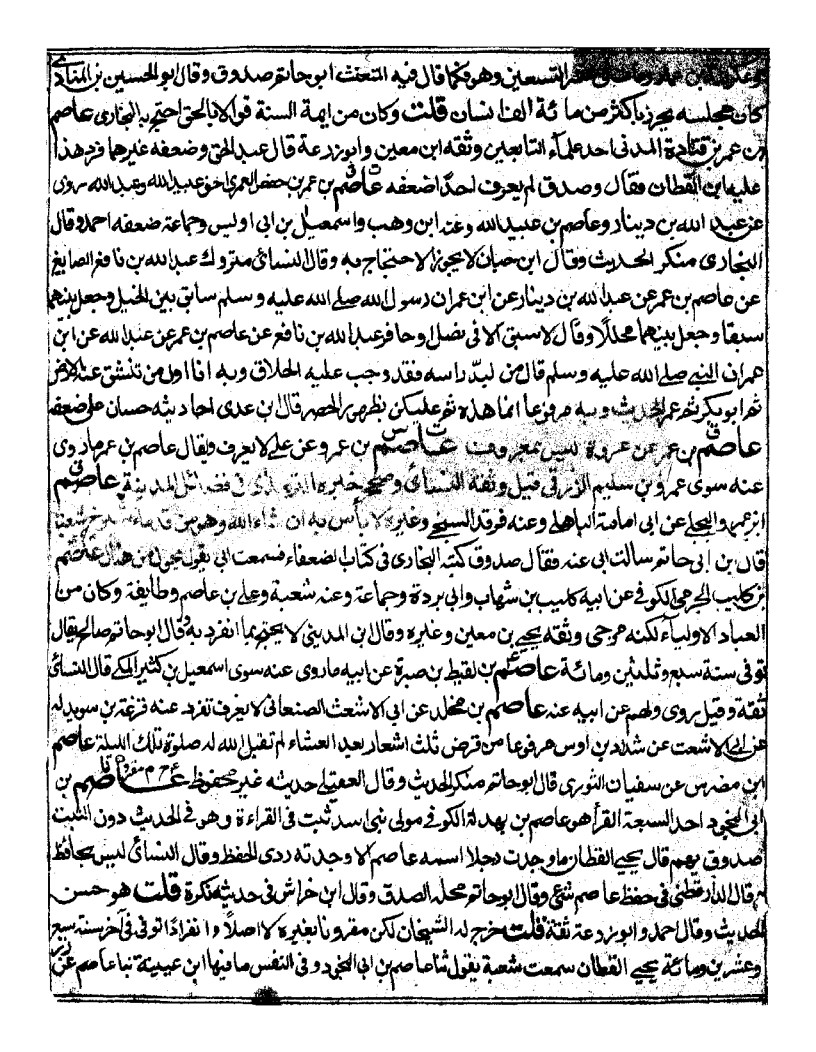 وعكرمة بن عمار التسعين وهو فكما قال فيه المتعنت ابو حاتم صدوق وقال ابو الحسين بن المنادى
كان مجلسه يحرز باكثر من مائة الف انسان قلت وكان من ايمة السنة قوالا بالحق احتج به البخارى عاصم
بن عمر بن قتادة المدنى احد علمآء التابعين وثقه ابن معين وابو زرعة قال عبد الحق وضعفه غيرهما فرد هذا
عليه ابن القطان فقال وصدق لم يعرف احدًا ضعفه ت ق عاصم بن عمر بن حفص العمرى اخو عبيد الله وعبد الله روى
عن عبد الله بن دينار وعاصم بن عبيد الله وعنه ابن وهب واسمعيل بن ابى اوليس وجماعة ضعفه احمد وقال
البخارى منكر الحديث وقال ابن حبان لا يجوز الاحتجاج به وقال النسائى متروك عبد الله بن نافع الصايغ
عن عاصم بن عمر عن عبد الله بن دينار عن ابن عمر ان رسول الله صلى الله عليه وسلم سابق بين الخيل وجعل بينهما
سبقا وجعل بينهما محللًا وقال لا سبق الا فى نصل او حافر عبد الله بن نافع عن عاصم بن عمر عن عبد الله عن ابن
عمر ان النبى صلى الله عليه وسلم قال من لبد راسه فقد وجب عليه الحلاق وبه انا اول من تنشق عنه الارض
ثم ابو بكر ثم عمر الحديث وبه مرفوعا انما هذه ثم عليكن بظهور الحصر قال ابن عدى احاديثه حسان على ضعفه
عاصم بن عمر عن عروة ليس بمعروف ت س عاصم بن عمرو عن على لا يعرف ويقال عاصم بن عمر ما روى
عنه سوى عمرو بن سليم الزرقى قيل وثقة النسائى وصحح خبره الترمذى فى فضائل المدينة ق عاصم
ابن عمرو البجلى عن ابى امامة الباهلى وعنه فرقد السبخى وغيره لا بأس به ان شاء الله وهو من قدماء شيوخ شعبة
قال بن ابى حاتم سالت ابى عنه فقال صدوق كتبه البخارى فى كتاب الضعفاء فسمعت ابى يقول يحول من هناك عاصم
بن كليب الجرمى الكوفى عن ابيه كليب بن شهاب وابى بردة وجماعة وعنه شعبة وعلى بن عاصم وطايفة وكان من
العباد الاولياء لكنه مرجى وثقه يحيى بن معين وغيره وقال ابن المدينى لا يحتج بما انفرد به وقال ابو حاتم صالح يقال
توفى سنة سبع وثلثين ومائة عاصم بن لقيط بن صبرة عن ابيه ما روى عنه سوى اسمعيل بن كثير المكى قال النسائى
ثقة وقيل يروى ولهم عن ابيه عنه عاصم بن مخلد عن ابى الاشعث الصنعانى لا يعرف تفرد عنه قزعة بن سويد له
عن ابى الاشعث عن شداد بن اوس مرفوعا من قرض ثلث اشعار بعد العشاء لم تقبل الله له صلوة تلك الليلة عاصم
ابن مضرس عن سفيان الثورى قال ابو حاتم منكر الحديث وقال العقيلى حديثه غير محفوظ ع خ م مقرونا عاصم بن
ابى النجود احد السبعة القرأ هو عاصم بن بهدلة الكوفى مولى بنى اسد ثبت فى القراءة وهو فى الحديث دون الثبت
صدوق يهم قال يحيى القطان ما وجدت رجلا اسمه عاصم الا وجدته ردى الحفظ وقال النسائى ليس بحافظ
وقال الدارقطنى فى حفظ عاصم شئ وقال ابو حاتم محله الصدق وقال ابن خراش فى حديثه نكرة قلت هو حسن
الحديث وقال احمد وابو زرعة ثقة قلت خرج له الشيخان لكن مقرونا بغيره لا اصلًا وانفرادًا توفى فى آخر سنة سبع
وعشرين ومائة يحيى القطان سمعت شعبة يقول ثنا عاصم بن ابى النجود وفى النفس ما فيها ابن عيينة ثنا عاصم عن زر